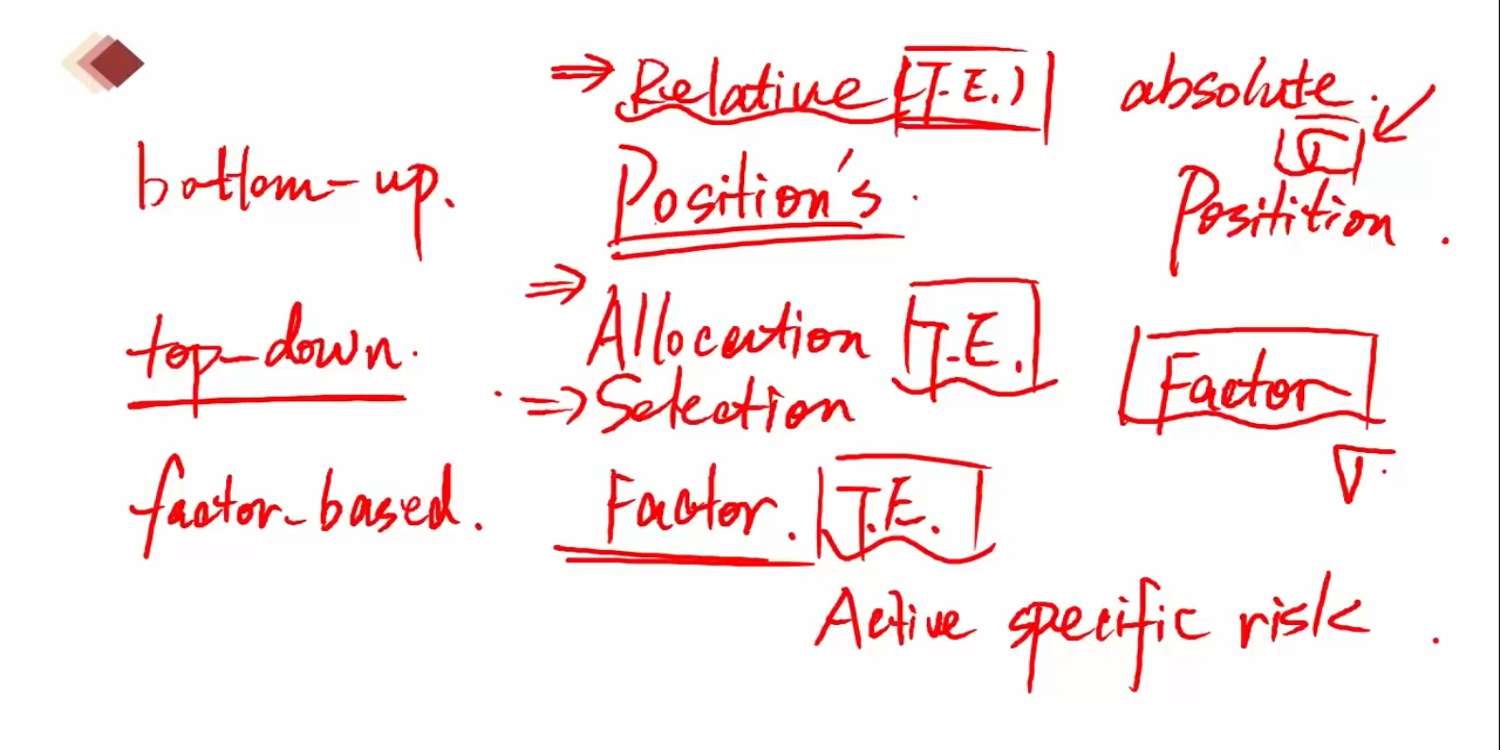 ⇒ Relative (T.E.) absolute.
σ
bottom-up. Position's. Positition.
⇒ Allocation T.E.
top-down. Factor
⇒ Selection
factor-based. Factor. T.E. σ.
Active specific risk.